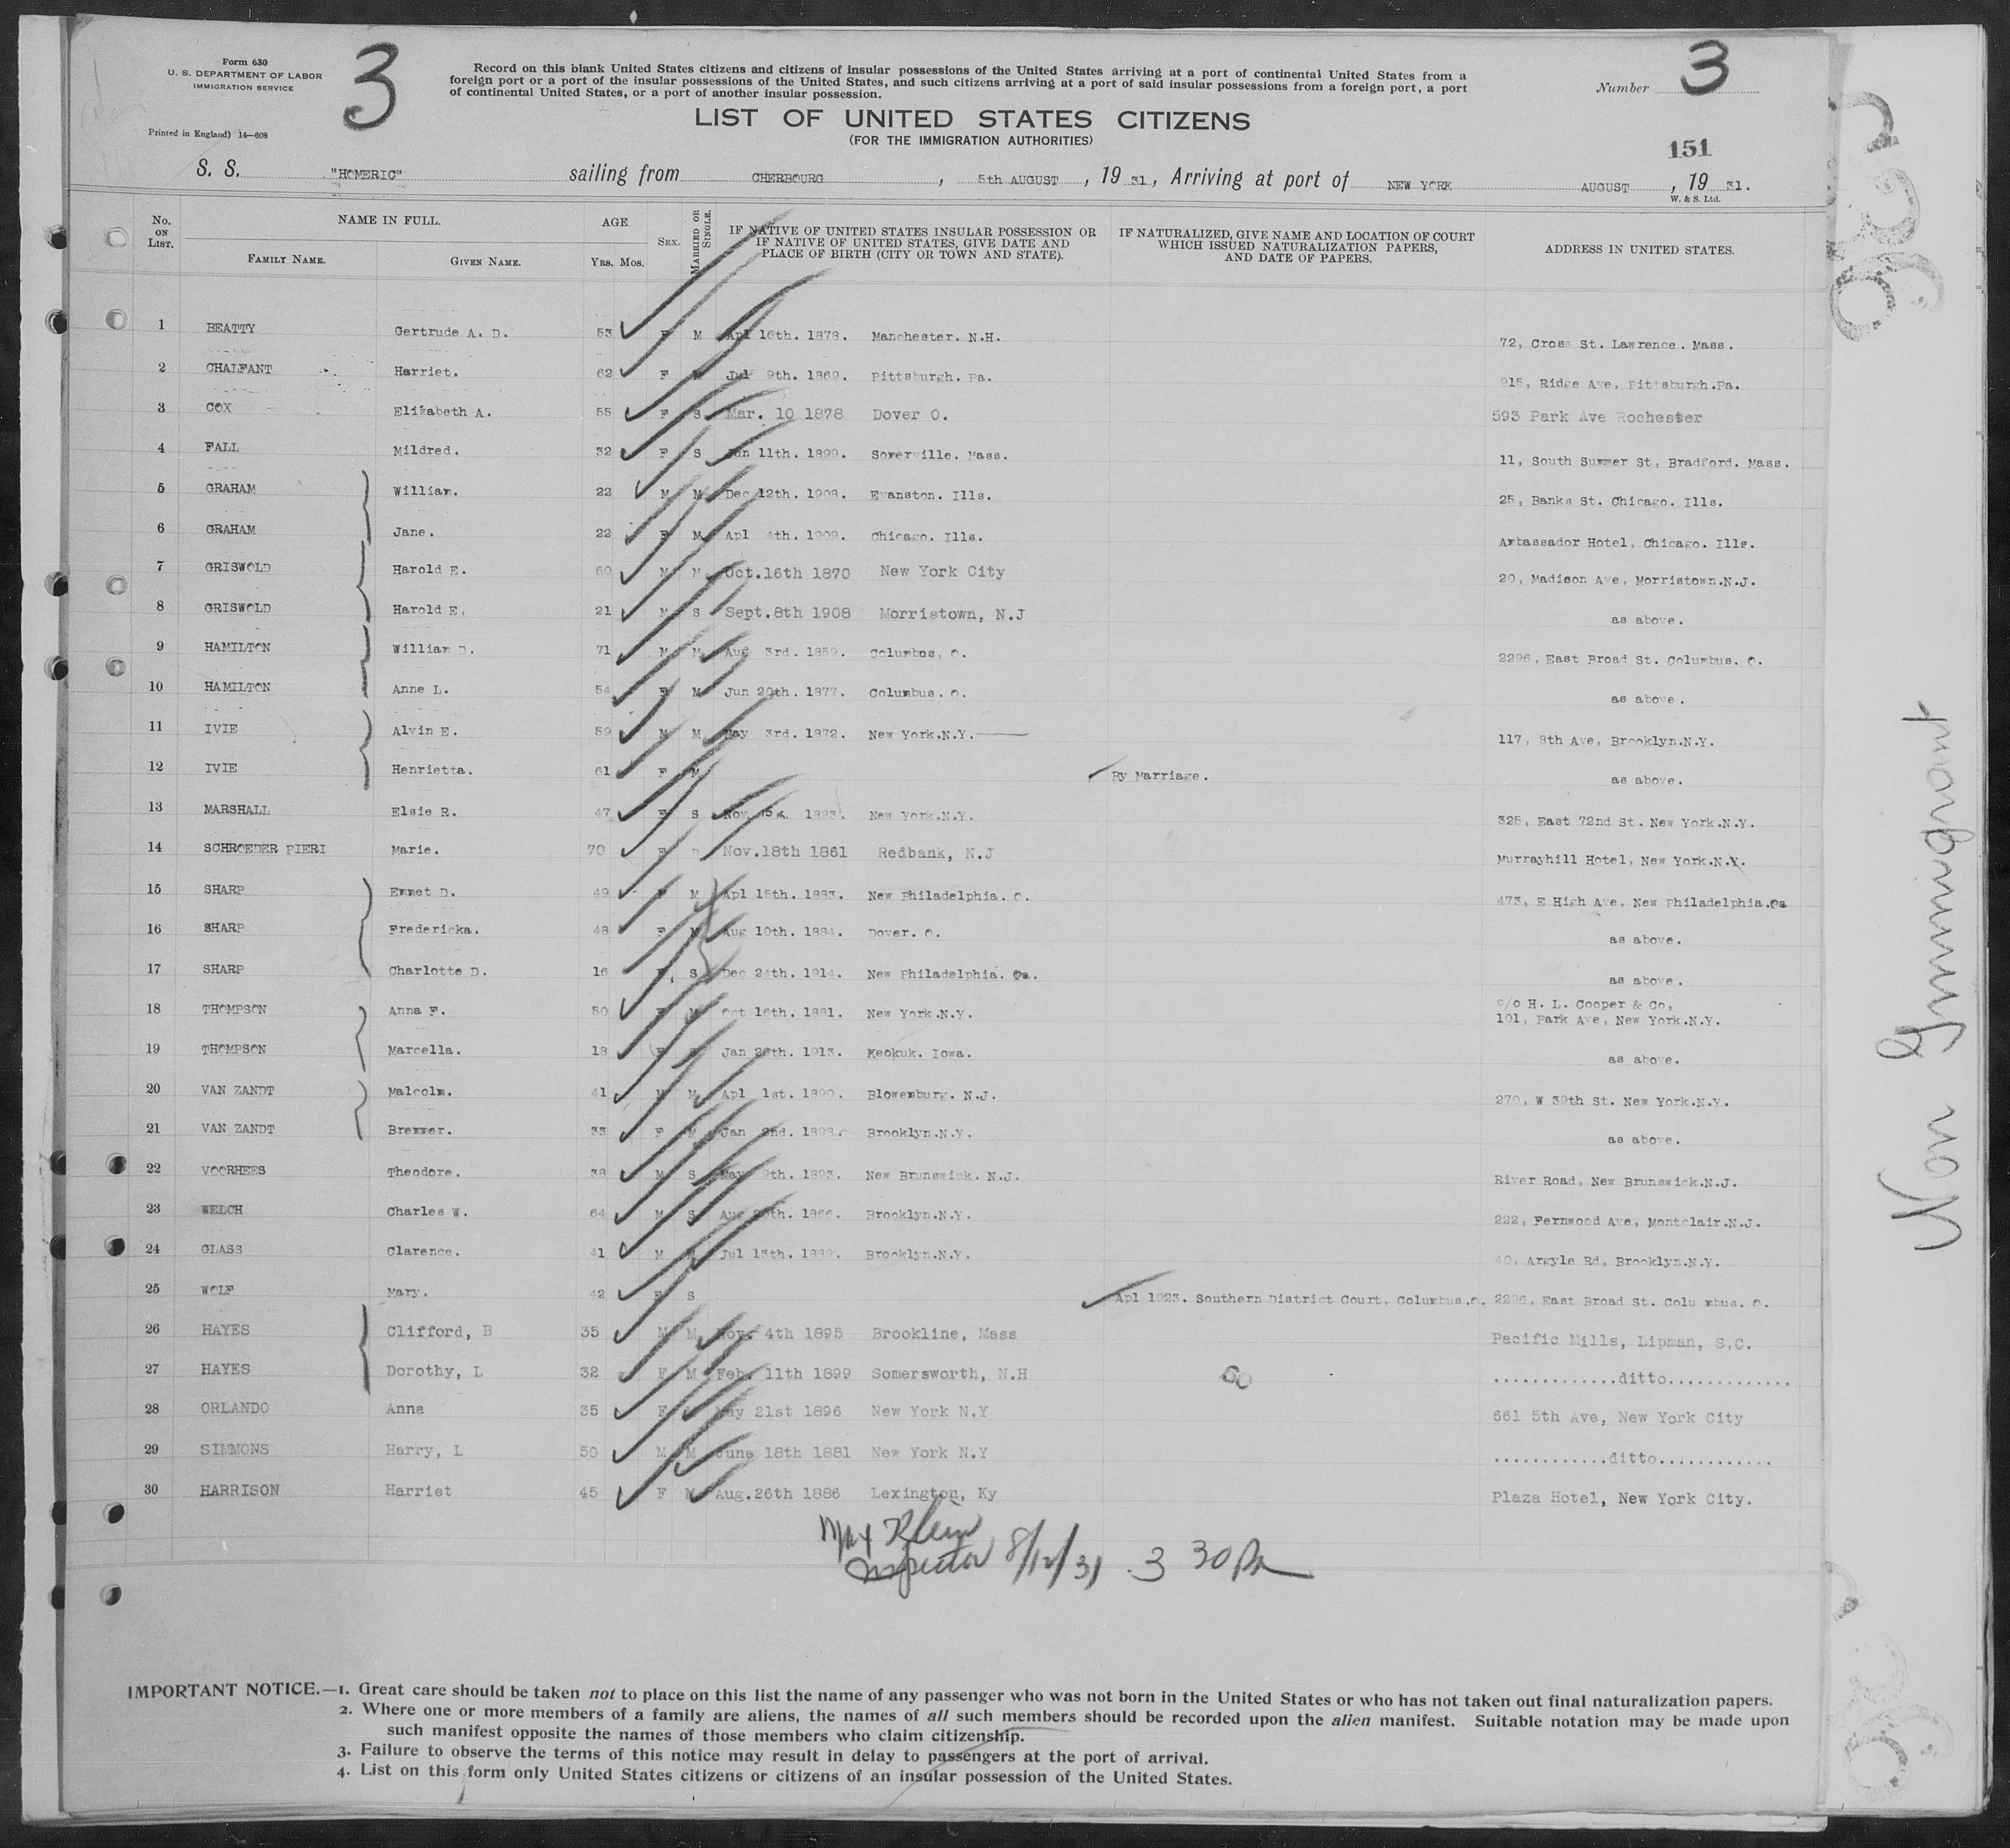 Form 630
U. S. DEPARTMENT OF LABOR
IMMIGRATION SERVICE
Printed in England) 14—608
3
Record on this blank United States citizens and citizens of insular possessions of the United States arriving at a port of continental United States from a
foreign port or a port of the insular possessions of the United States, and such citizens arriving at a port of said insular possessions from a foreign port, a port
of continental United States, or a port of another insular possession.
Number 3
LIST OF UNITED STATES CITIZENS
(FOR THE IMMIGRATION AUTHORITIES)
151
S. S. "HOMERIC" sailing from CHERBOURG, 5th AUGUST, 19 31, Arriving at port of NEW YORK AUGUST, 19 31.
W. & S. Ltd.
No. ON LIST. NAME IN FULL. FAMILY NAME. GIVEN NAME. AGE Yrs. Mos. SEX. MARRIED OR SINGLE. IF NATIVE OF UNITED STATES INSULAR POSSESSION OR IF NATIVE OF UNITED STATES, GIVE DATE AND PLACE OF BIRTH (CITY OR TOWN AND STATE). IF NATURALIZED, GIVE NAME AND LOCATION OF COURT WHICH ISSUED NATURALIZATION PAPERS, AND DATE OF PAPERS. ADDRESS IN UNITED STATES.
1 BEATTY Gertrude A. D. 53 F M Apl 16th. 1878. Manchester. N.H. 72, Cross St. Lawrence. Mass.
2 CHALFANT Harriet. 62 F M Jul 9th. 1869. Pittsburgh. Pa. 915, Ridge Ave, Pittsburgh.Pa.
3 COX Elizabeth A. 55 F S Mar. 10 1878 Dover O. 593 Park Ave Rochester
4 FALL Mildred. 32 F S Jun 11th. 1899. Somerville. Mass. 11, South Summer St, Bradford. Mass.
5 GRAHAM William. 22 M M Dec 12th. 1908. Evanston. Ills. 25, Banks St. Chicago. Ills.
6 GRAHAM Jane. 22 F M Apl 4th. 1909. Chicago. Ills. Ambassador Hotel, Chicago. Ills.
7 GRISWOLD Harold E. 60 M M Oct.16th 1870 New York City 20, Madison Ave, Morristown.N.J.
8 GRISWOLD Harold E, 21 M S Sept.8th 1908 Morristown, N.J as above.
9 HAMILTON William D. 71 M M Aug 3rd. 1859. Columbos, O. 2296, East Broad St. Columbus. O.
10 HAMILTON Anne L. 54 F M Jun 20th. 1877. Columbus. O. as above.
11 IVIE Alvin E. 59 M M May 3rd. 1872. New York.N.Y. 117, 8th Ave, Brooklyn.N.Y.
12 IVIE Henrietta. 61 F M By Marriage. as above.
13 MARSHALL Elsie R. 47 F S Nov 1883. New York.N.Y. 325, East 72nd St. New York.N.Y.
14 SCHROEDER PIERI Marie. 70 F Nov.18th 1861 Redbank, N.J Murrayhill Hotel, New York.N.Y.
15 SHARP Emmet D. 49 M Apl 15th. 1883. New Philadelphia. O. 473, E High Ave, New Philadelphia.
16 SHARP Fredericka. 48 F M Aug 10th. 1884. Dover. O. as above.
17 SHARP Charlotte D. 16 F S Dec 24th. 1914. New Philadelphia. as above.
18 THOMPSON Anna F. 50 F M Oct 16th. 1881. New York.N.Y. c/o H. L. Cooper & Co,
101, Park Ave, New York.N.Y.
19 THOMPSON Marcella. 18 F S Jan 1913. Keokuk. Iowa. as above.
20 VAN ZANDT Malcolm. 41 M M Apl 1st. 1890. Blowemburg. N.J. 270, W 39th St. New York.N.Y.
21 VAN ZANDT Bremmer. 33 F M Jan 2nd. 1898. Brooklyn.N.Y. as above.
22 VOORHEES Theodore. 38 M S May 9th. 1893. New Brunswick. N.J. River Road, New Brunswick.N.J.
23 WELCH Charles W. 64 M S Aug 1866. Brooklyn.N.Y. 222, Fernwood Ave, Montclair.N.J.
24 GLASS Clarence. 41 M Jul 13th. 1889. Brooklyn.N.Y. 40, Argyle Rd, Brooklyn.N.Y.
25 WOLF Mary. 42 F S Apl 1923. Southern District Court, Columbus.O. 2296, East Broad St. Colu mbus. O.
26 HAYES Clifford, B 35 M M Nov. 4th 1895 Brookline, Mass Pacific Mills, Lipman, S,C.
27 HAYES Dorothy, L 32 F M Feb. 11th 1899 Somersworth, N.H .............ditto.............
28 ORLANDO Anna 35 F May 21st 1896 New York N.Y 661 5th Ave, New York City
29 SIMMONS Harry, L 50 M M June 18th 1881 New York N.Y ............ditto............
30 HARRISON Harriet 45 F M Aug.26th 1886 Lexington, Ky Plaza Hotel, New York City.
60
Max Klein
Inspector 8/12/31 3 30 Pm
IMPORTANT NOTICE.—1. Great care should be taken not to place on this list the name of any passenger who was not born in the United States or who has not taken out final naturalization papers.
2. Where one or more members of a family are aliens, the names of all such members should be recorded upon the alien manifest. Suitable notation may be made upon
such manifest opposite the names of those members who claim citizenship.
3. Failure to observe the terms of this notice may result in delay to passengers at the port of arrival.
4. List on this form only United States citizens or citizens of an insular possession of the United States.
Non Immigrant